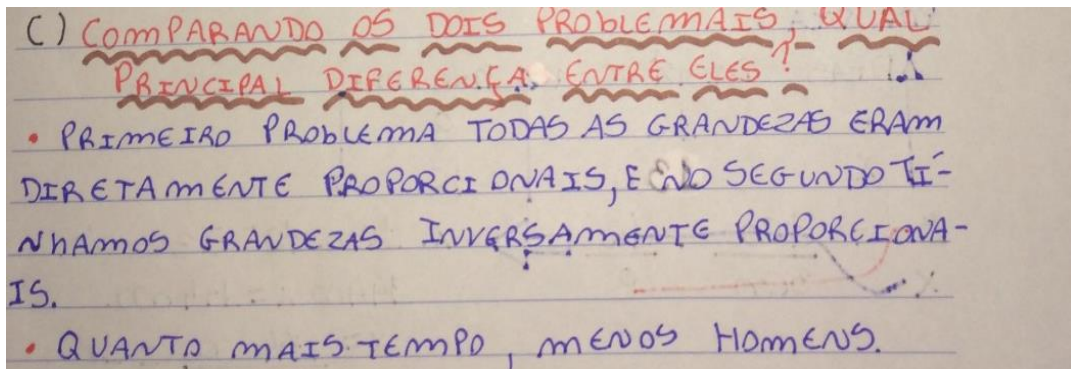 C) COMPARANDO OS DOIS PROBLEMAIS, QUAL
PRINCIPAL DIFERENÇA ENTRE ELES?
• PRIMEIRO PROBLEMA TODAS AS GRANDEZAS ERAM
DIRETAMENTE PROPORCIONAIS, E NO SEGUNDO TÍ-
NHAMOS GRANDEZAS INVERSAMENTE PROPORCIONA-
IS.
• QUANTO MAIS TEMPO, MENOS HOMENS.